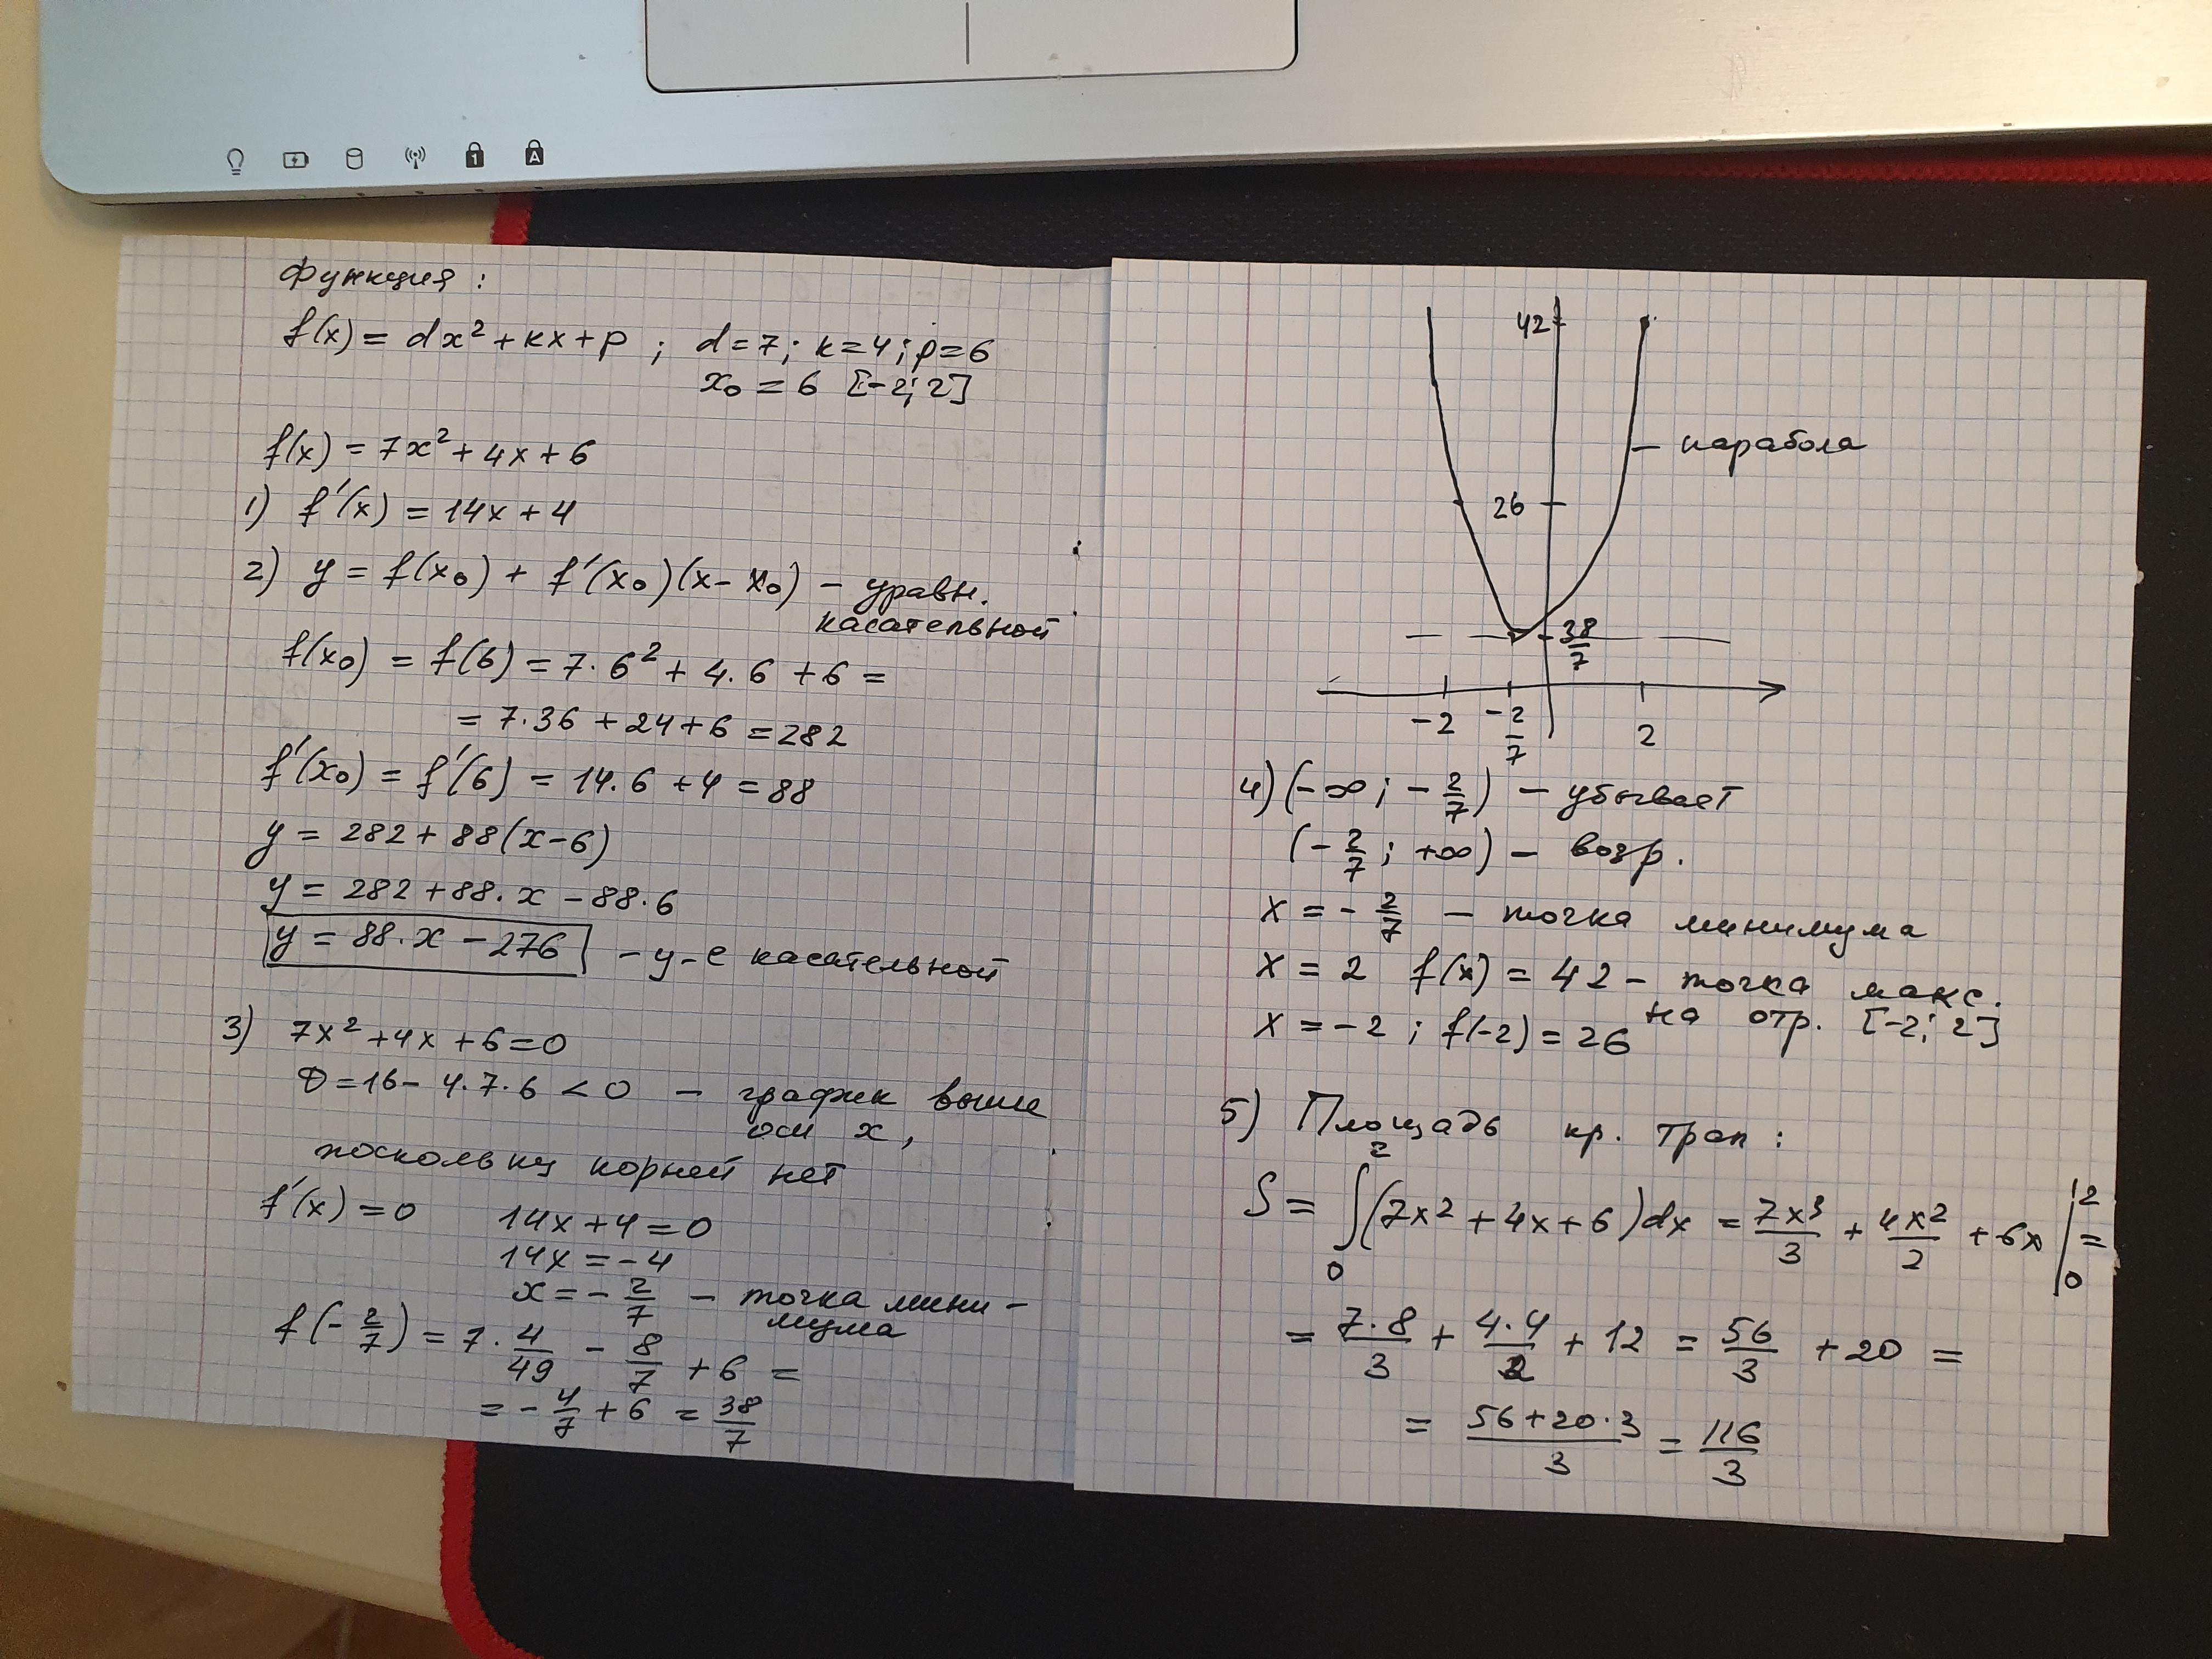 Функция:
f(x) = dx² + кx + p ; d=7; к=4; p=6
x₀ = 6 [-2; 2]
f(x) = 7x² + 4x + 6
1) f'(x) = 14x + 4
2) y = f(x₀) + f'(x₀)(x - x₀) - уравн.
касательной
f(x₀) = f(6) = 7·6² + 4·6 + 6 =
= 7·36 + 24 + 6 = 282
f'(x₀) = f'(6) = 14·6 + 4 = 88
y = 282 + 88(x-6)
y = 282 + 88·x - 88·6
y = 88·x - 276 - у-е касательной
3) 7x² + 4x + 6 = 0
D = 16 - 4·7·6 < 0 - график выше
оси x,
поскольку корней нет
f'(x) = 0 14x + 4 = 0
14x = -4
x = - 2/7 - точка мини-
мума
f(- 2/7) = 7 · 4/49 - 8/7 + 6 =
= - 4/7 + 6 = 38/7
42
- парабола
26
38/7
-2 - 2/7 2
4) (-∞; - 2/7) - убывает
(- 2/7; +∞) - возр.
x = - 2/7 - точка минимума
x = 2 f(x) = 42 - точка макс.
на отр. [-2; 2]
x = -2 ; f(-2) = 26
5) Площадь кр. трап:
S = ∫₀² (7x² + 4x + 6)dx = 7x³/3 + 4x²/2 + 6x |₀² =
= 7·8/3 + 4·4/2 + 12 = 56/3 + 20 =
= 56+20·3/3 = 116/3